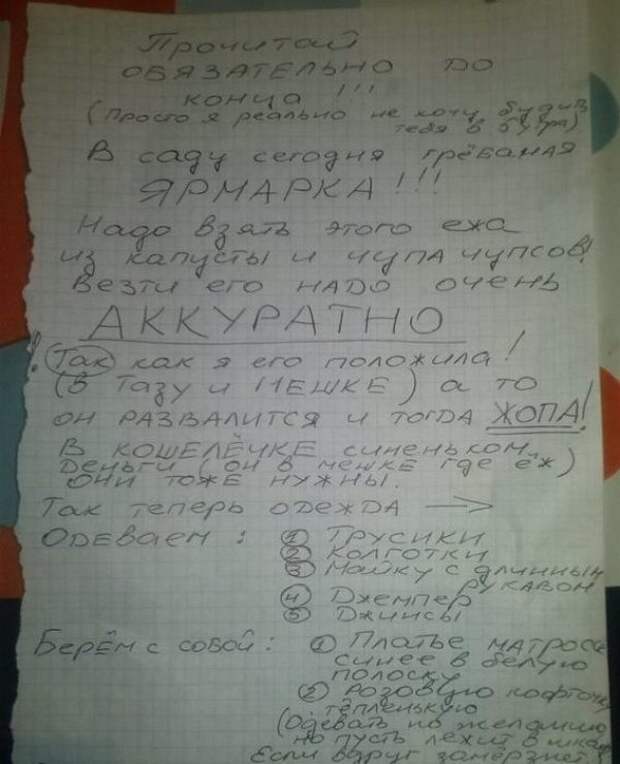 Прочитай
ОБЯЗАТЕЛЬНО ДО
КОНЦА !!!
(Просто я реально не хочу будить
тебя в 5 утра)
В саду сегодня грёбаная
ЯРМАРКА!!!
Надо взять этого ежа
из капусты и чупа чупсов!
Везти его НАДО очень
АККУРАТНО
! Так как я его положила!
(В ТАЗУ И МЕШКЕ) а то
он РАЗВАЛИТСЯ и тогда ЖОПА!
В КОШЕЛЁЧКЕ синеньком
деньги (он в мешке где ёж)
ОНИ ТОЖЕ НУЖНЫ.
Так теперь ОДЕЖДА →
ОДЕВАЕМ: 1 ТРУСИКИ
2 КОЛГОТКИ
3 Майку с длинным
РУКАВОМ
4 Джемпер
5 Джинсы
Берём с собой: 1 Платье матроск
синее в белую
полоску
2 Розовую кофточку
тёпленькую
(Одевать по желанию
но пусть лежит в шкаф
Если вдруг замёрзнет)